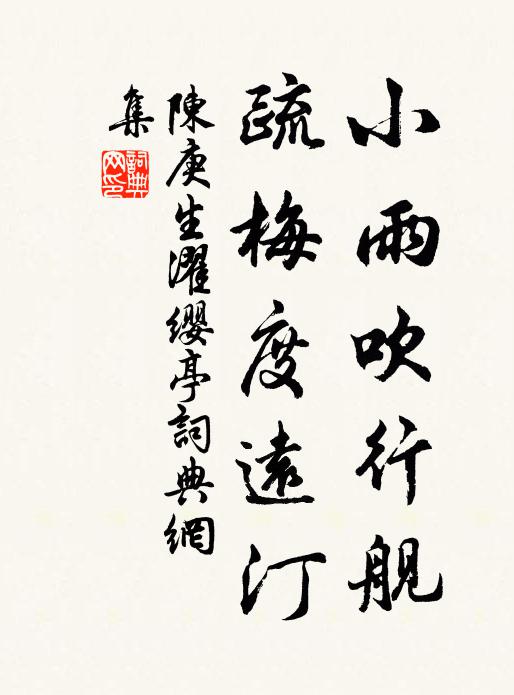 小雨吹行舰
疏梅度遠汀
陳庚生濯纓亭詞典網
集
詞典网印